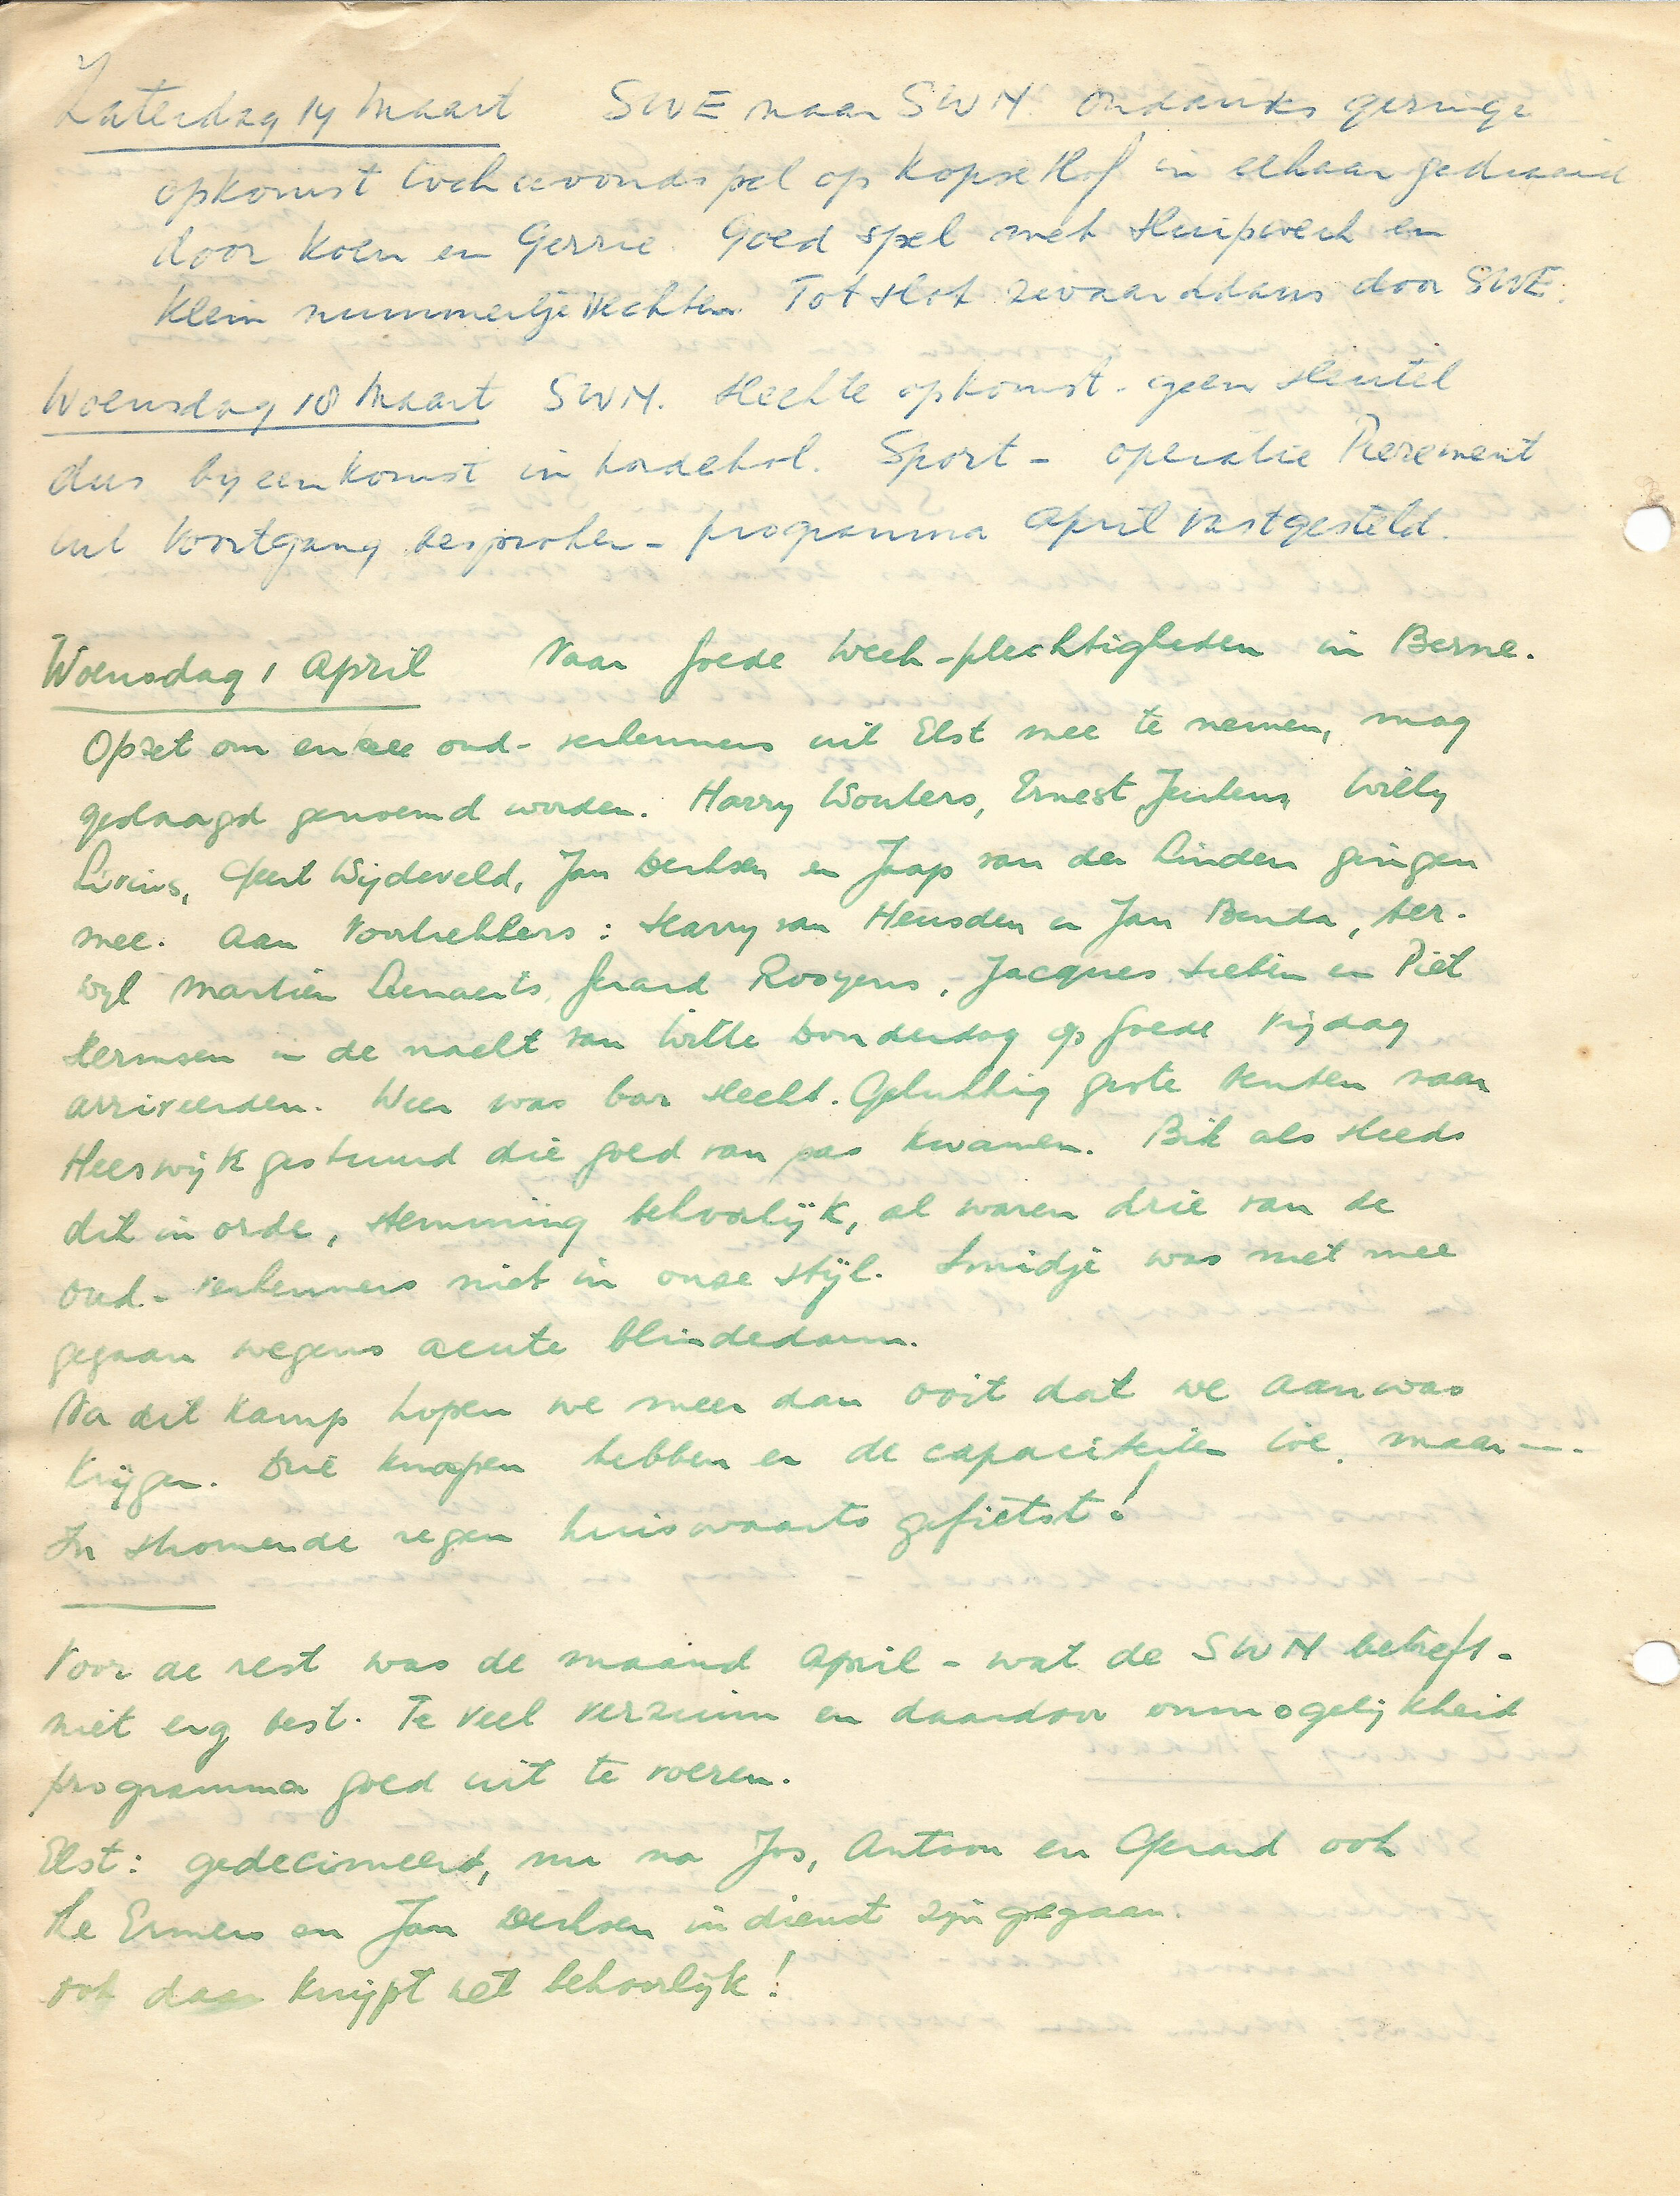 Zaterdag 14 Maart SWE naar SWN. Ondanks geringe
opkomst toch avondspel op Kopse Hof in elkaar gedraaid
door Koen en Gerrie. Goed spel met sluipwerk en
klein nummertje vechten. Tot slot zwaarddans door SWE.
Woensdag 18 Maart SWN. Slechte opkomst - geen sleutel
dus bijeenkomst in hordehol. Sport - operatie Pierement
uit Voortgang besproken - programma April vastgesteld.
Woensdag 1 April Naar Goede Week-plechtigheden in Berne.
Opzet om enkele oud-verkenners uit Elst mee te nemen, mag
geslaagd genoemd worden. Harry Wouters, Ernest Jeukens, Willy
Geert Wijdeveld, Jan Derksen en Jaap van der Linden gingen
mee. Aan Voortrekkers: Harry van Heusden en Jan Benda, ter-
wijl Martien Lenaerts, Gerard Rooyens, Jacques en Piet
Hermsen in de nacht van Witte Donderdag op Goede Vrijdag
arriveerden. Weer was bar slecht. Gelukkig grote tenten naar
Heeswijk gestuurd die goed van pas kwamen. Bik als steeds
dik in orde, stemming behoorlijk, al waren drie van de
oud-verkenners niet in onze stijl. Smidje was niet mee
gegaan wegens acute blindedarm.
Na dit kamp hopen we meer dan ooit dat we aanwas
krijgen. Drie knapen hebben er de capaciteiten toe, maar -..
In stromende regen huiswaarts gefietst!
Voor de rest was de maand April - wat de SWN betreft -
niet erg best. Te veel verzuim en daardoor onmogelijkheid
programma goed uit te voeren.
Elst: gedecimeerd, nu na Jos, Antoon en Gerard ook
Ermers en Jan Derksen in dienst zijn gegaan.
Ook daar knijpt het behoorlijk!